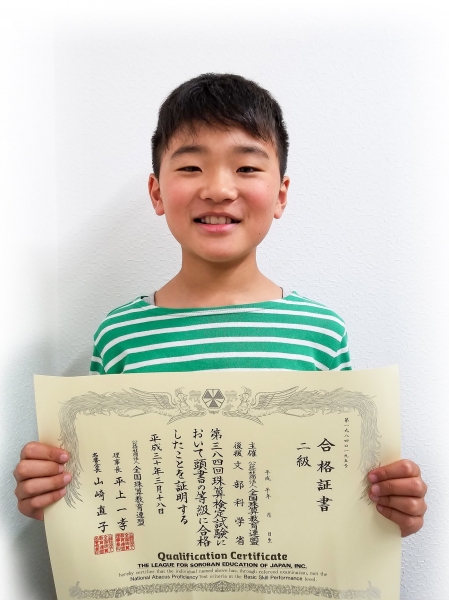 合格証書
二級
平成 年 月 日生
主催 全国珠算教育連盟
後援 文部科学省
第三八四回珠算検定試験に
おいて頭書の等級に合格
したことを証明する
平成三十年三月十八日
全国珠算教育連盟
理事長 平上一孝
山崎直子
Qualification Certificate
THE LEAGUE FOR SOROBAN EDUCATION OF JAPAN, INC.
hereby certifies that the individual named above has, through refereed examination, met the
National Abacus Proficiency test criteria at the Basic Skill Performance level.